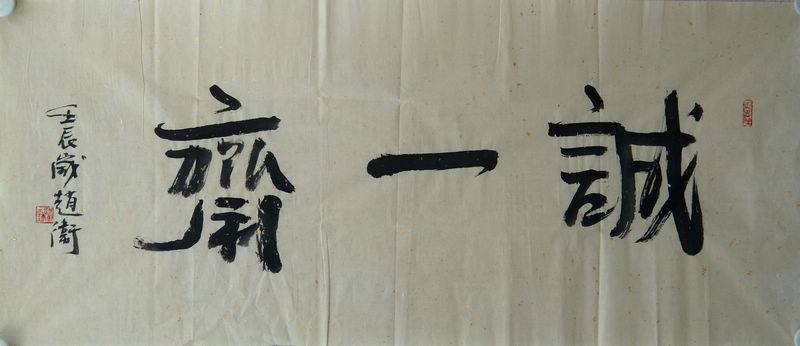 誠一齋
壬辰歲趙衛